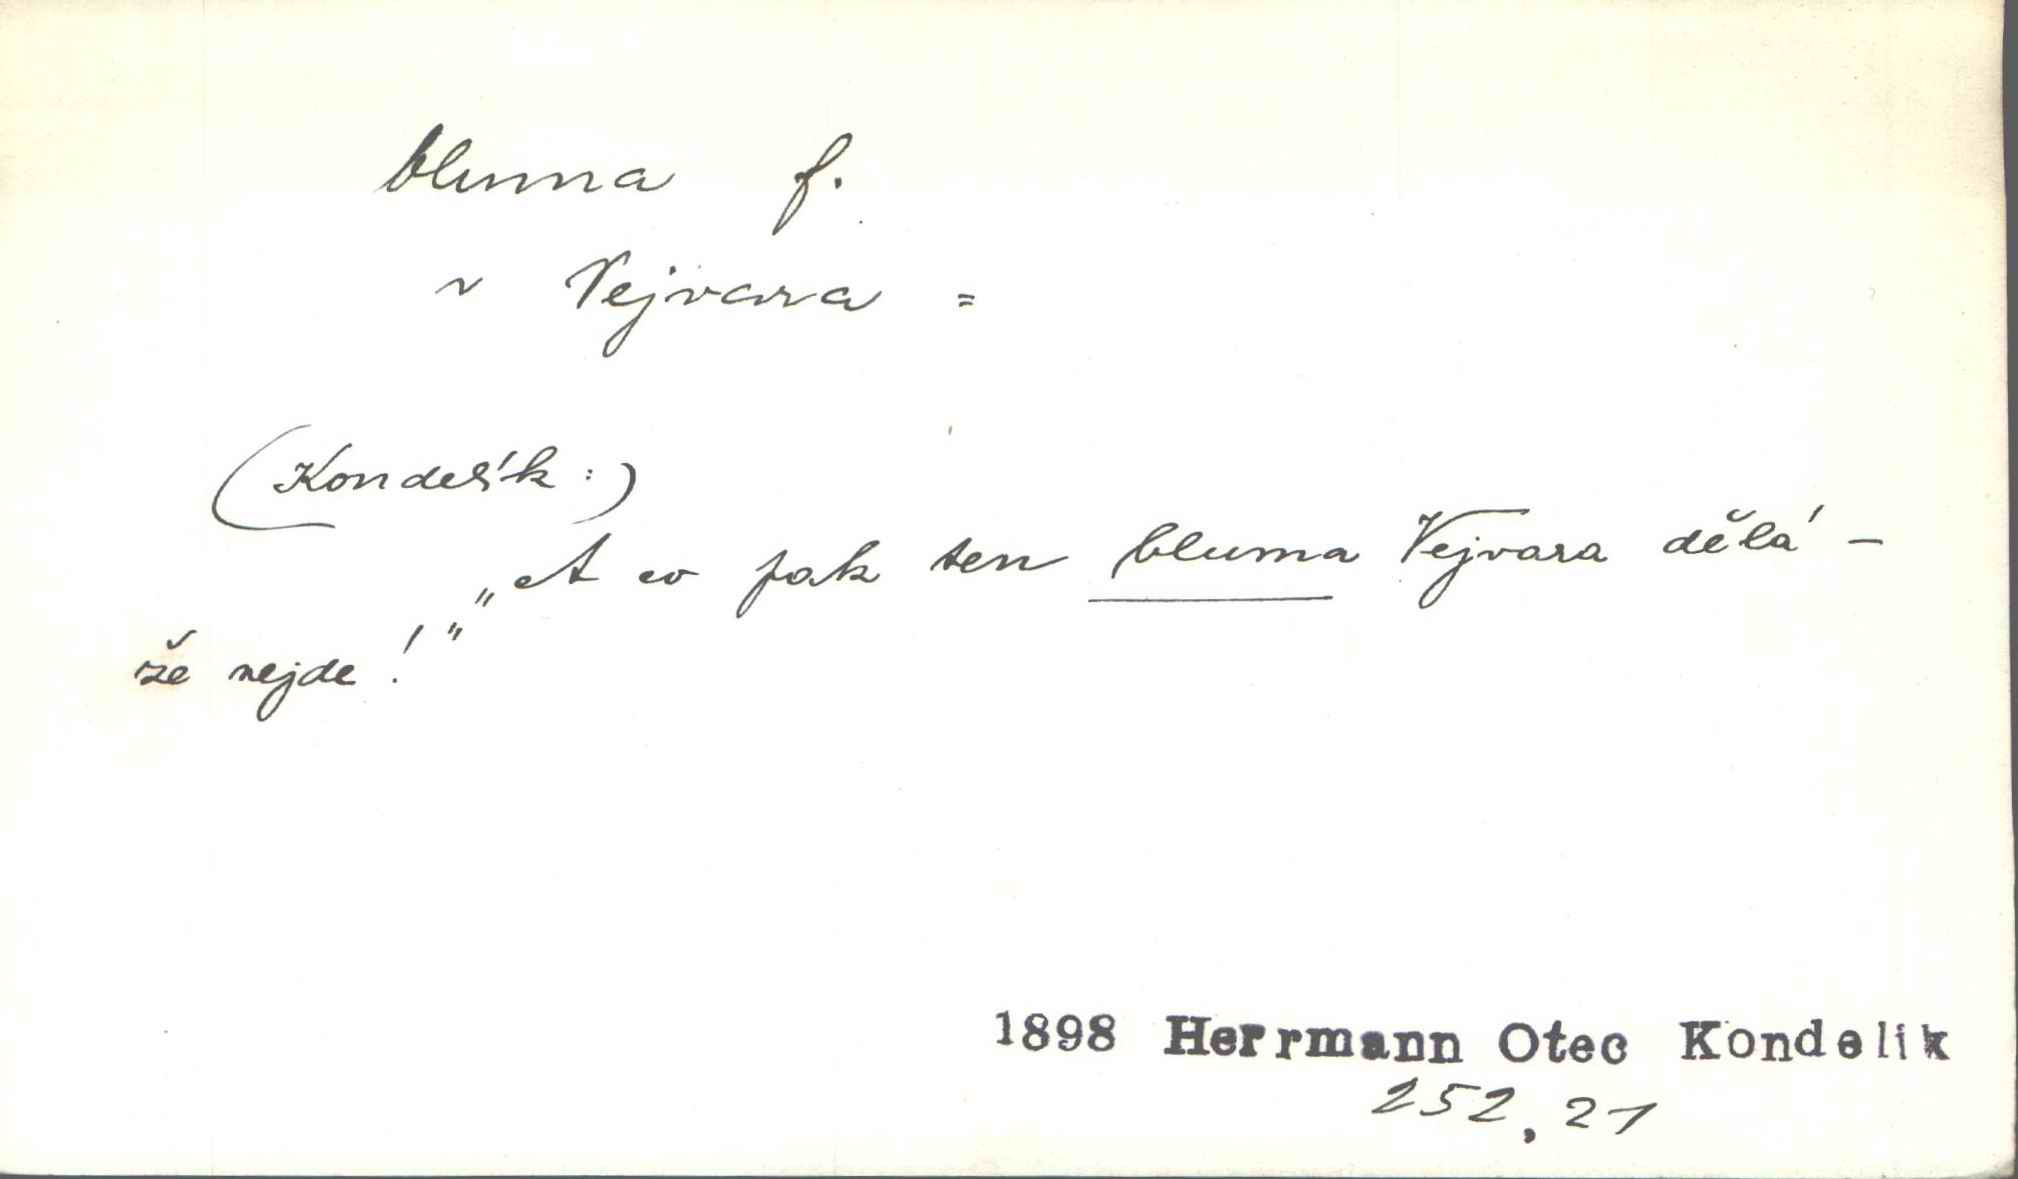 bluma f.
~ Vejvara =
(Kondelík:)
„A co pak ten bluma Vejvara dělá –
že nejde!“
1898 Herrmann Otec Kondelík
252,21